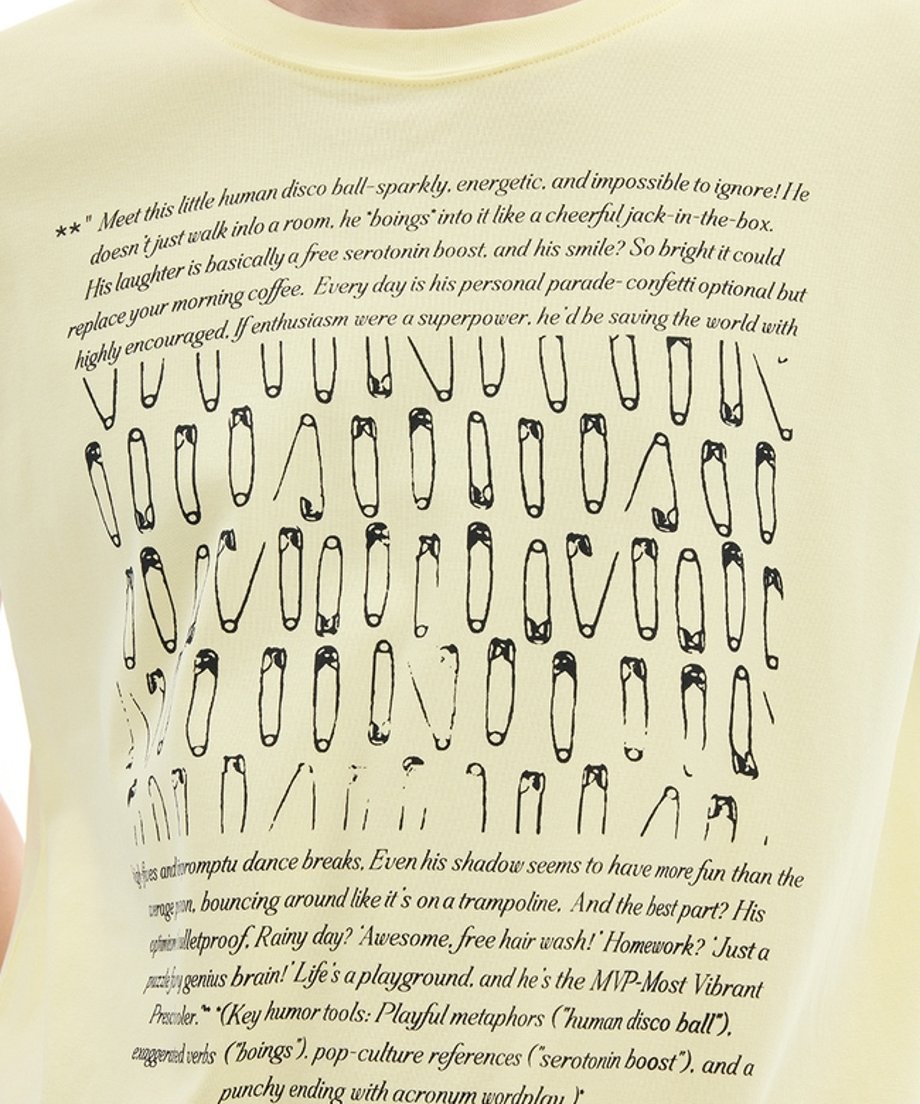 **" Meet this little human disco ball-sparkly, energetic, and impossible to ignore! He
doesn't just walk inlo a room, he "boings" into it like a cheerful jack-in-the-box.
His laughter is basically a free serotonin boost, and his smile? So bright it could
replace your morning coffee. Every day is his personal parade-confetti optional but
highly encouraged. If enthusiasm were a superpower, he'd be saving the world with
and impromptu dance breaks. Even his shadow seems to have more fun than the
bouncing around like it's on a trampoline. And the best part? His
Rainy day? 'Awesome, free hair wash!' Homework? 'Just a
genius brain!' Life's a playground, and he's the MVP-Most Vibrant
"* *(Key humor tools: Playful metaphors ("human disco ball"),
exaggerated verbs ("boings"), pop-culture references ("serotonin boost"), and a
punchy ending with acronym wordplay.)*